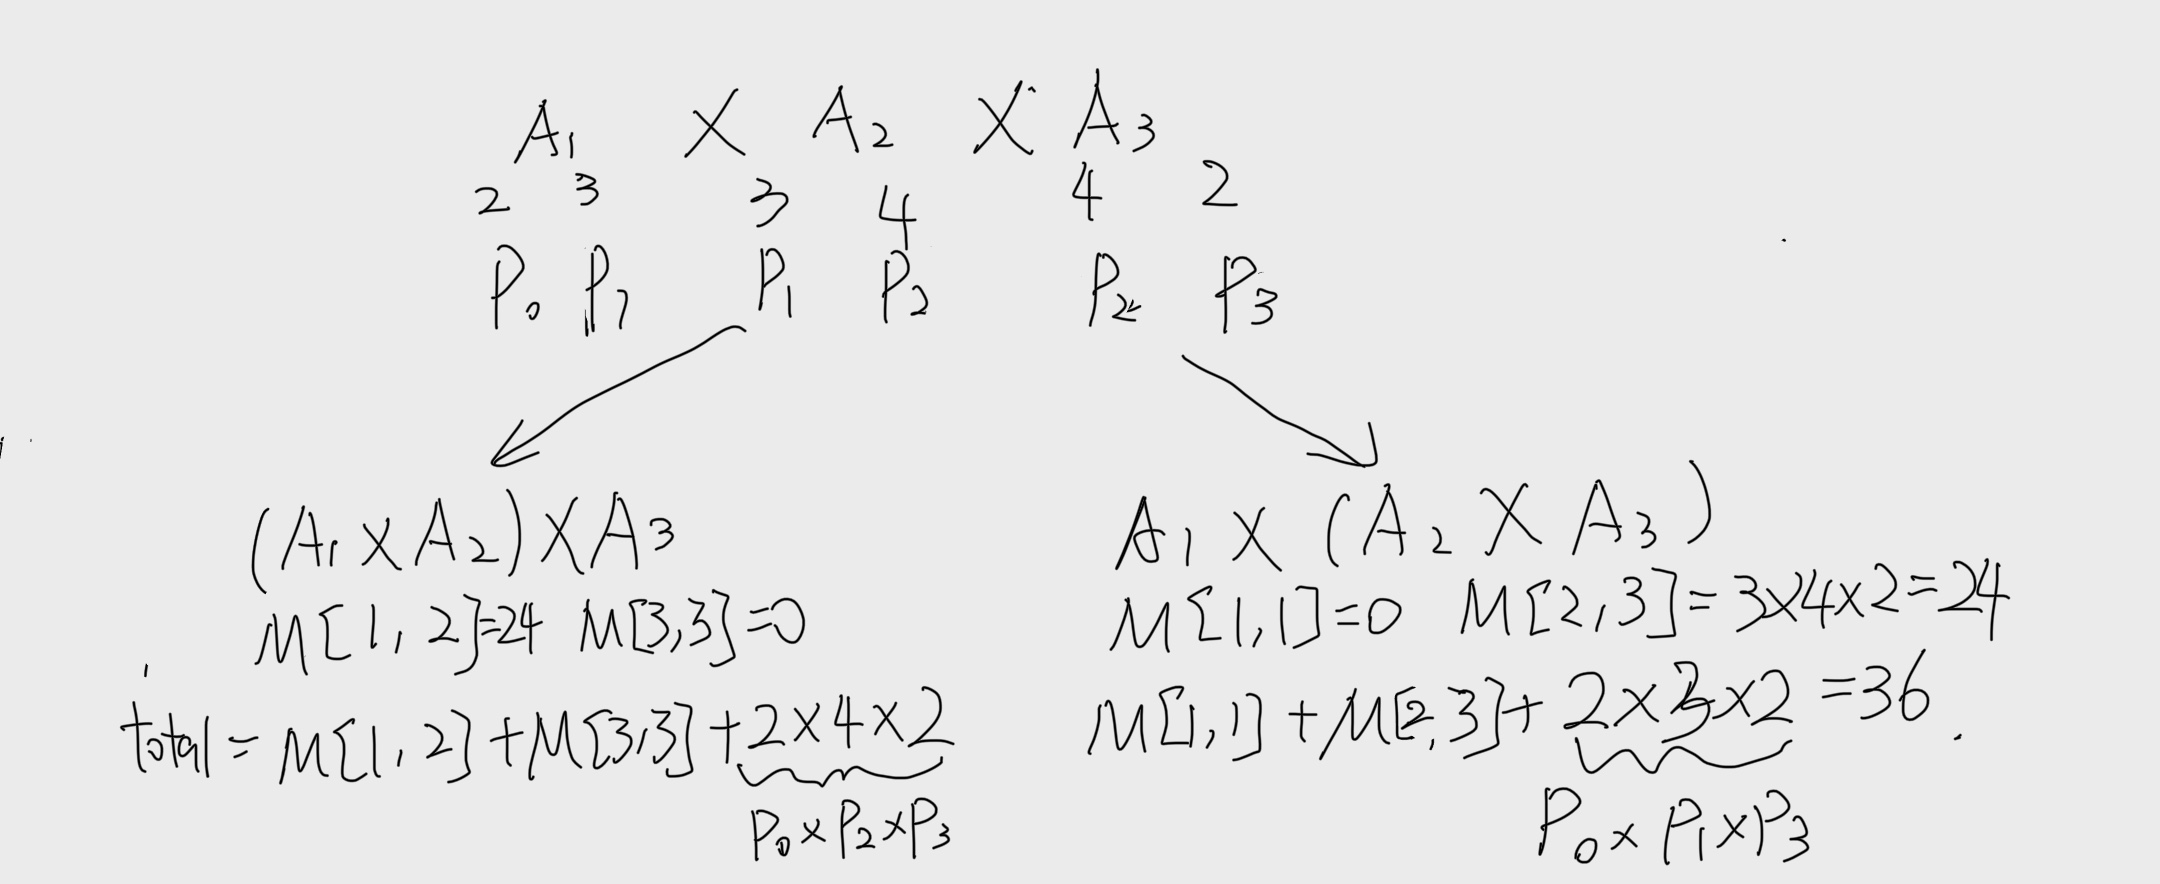 A₁ X A₂ X A₃
2 3 3 4 4 2
P₀ P₁ P₁ P₂ P₂ P₃
(A₁ X A₂) X A₃
M[1, 2]=24 M[3,3]=0
total = M[1, 2] + M[3,3] + 2 x 4 x 2
P₀ x P₂ x P₃
A₁ X (A₂ X A₃)
M[1,1]=0 M[2,3]=3x4x2=24
M[1,1] + M[2,3] + 2 x 3 x 2 = 36.
P₀ x P₁ x P₃